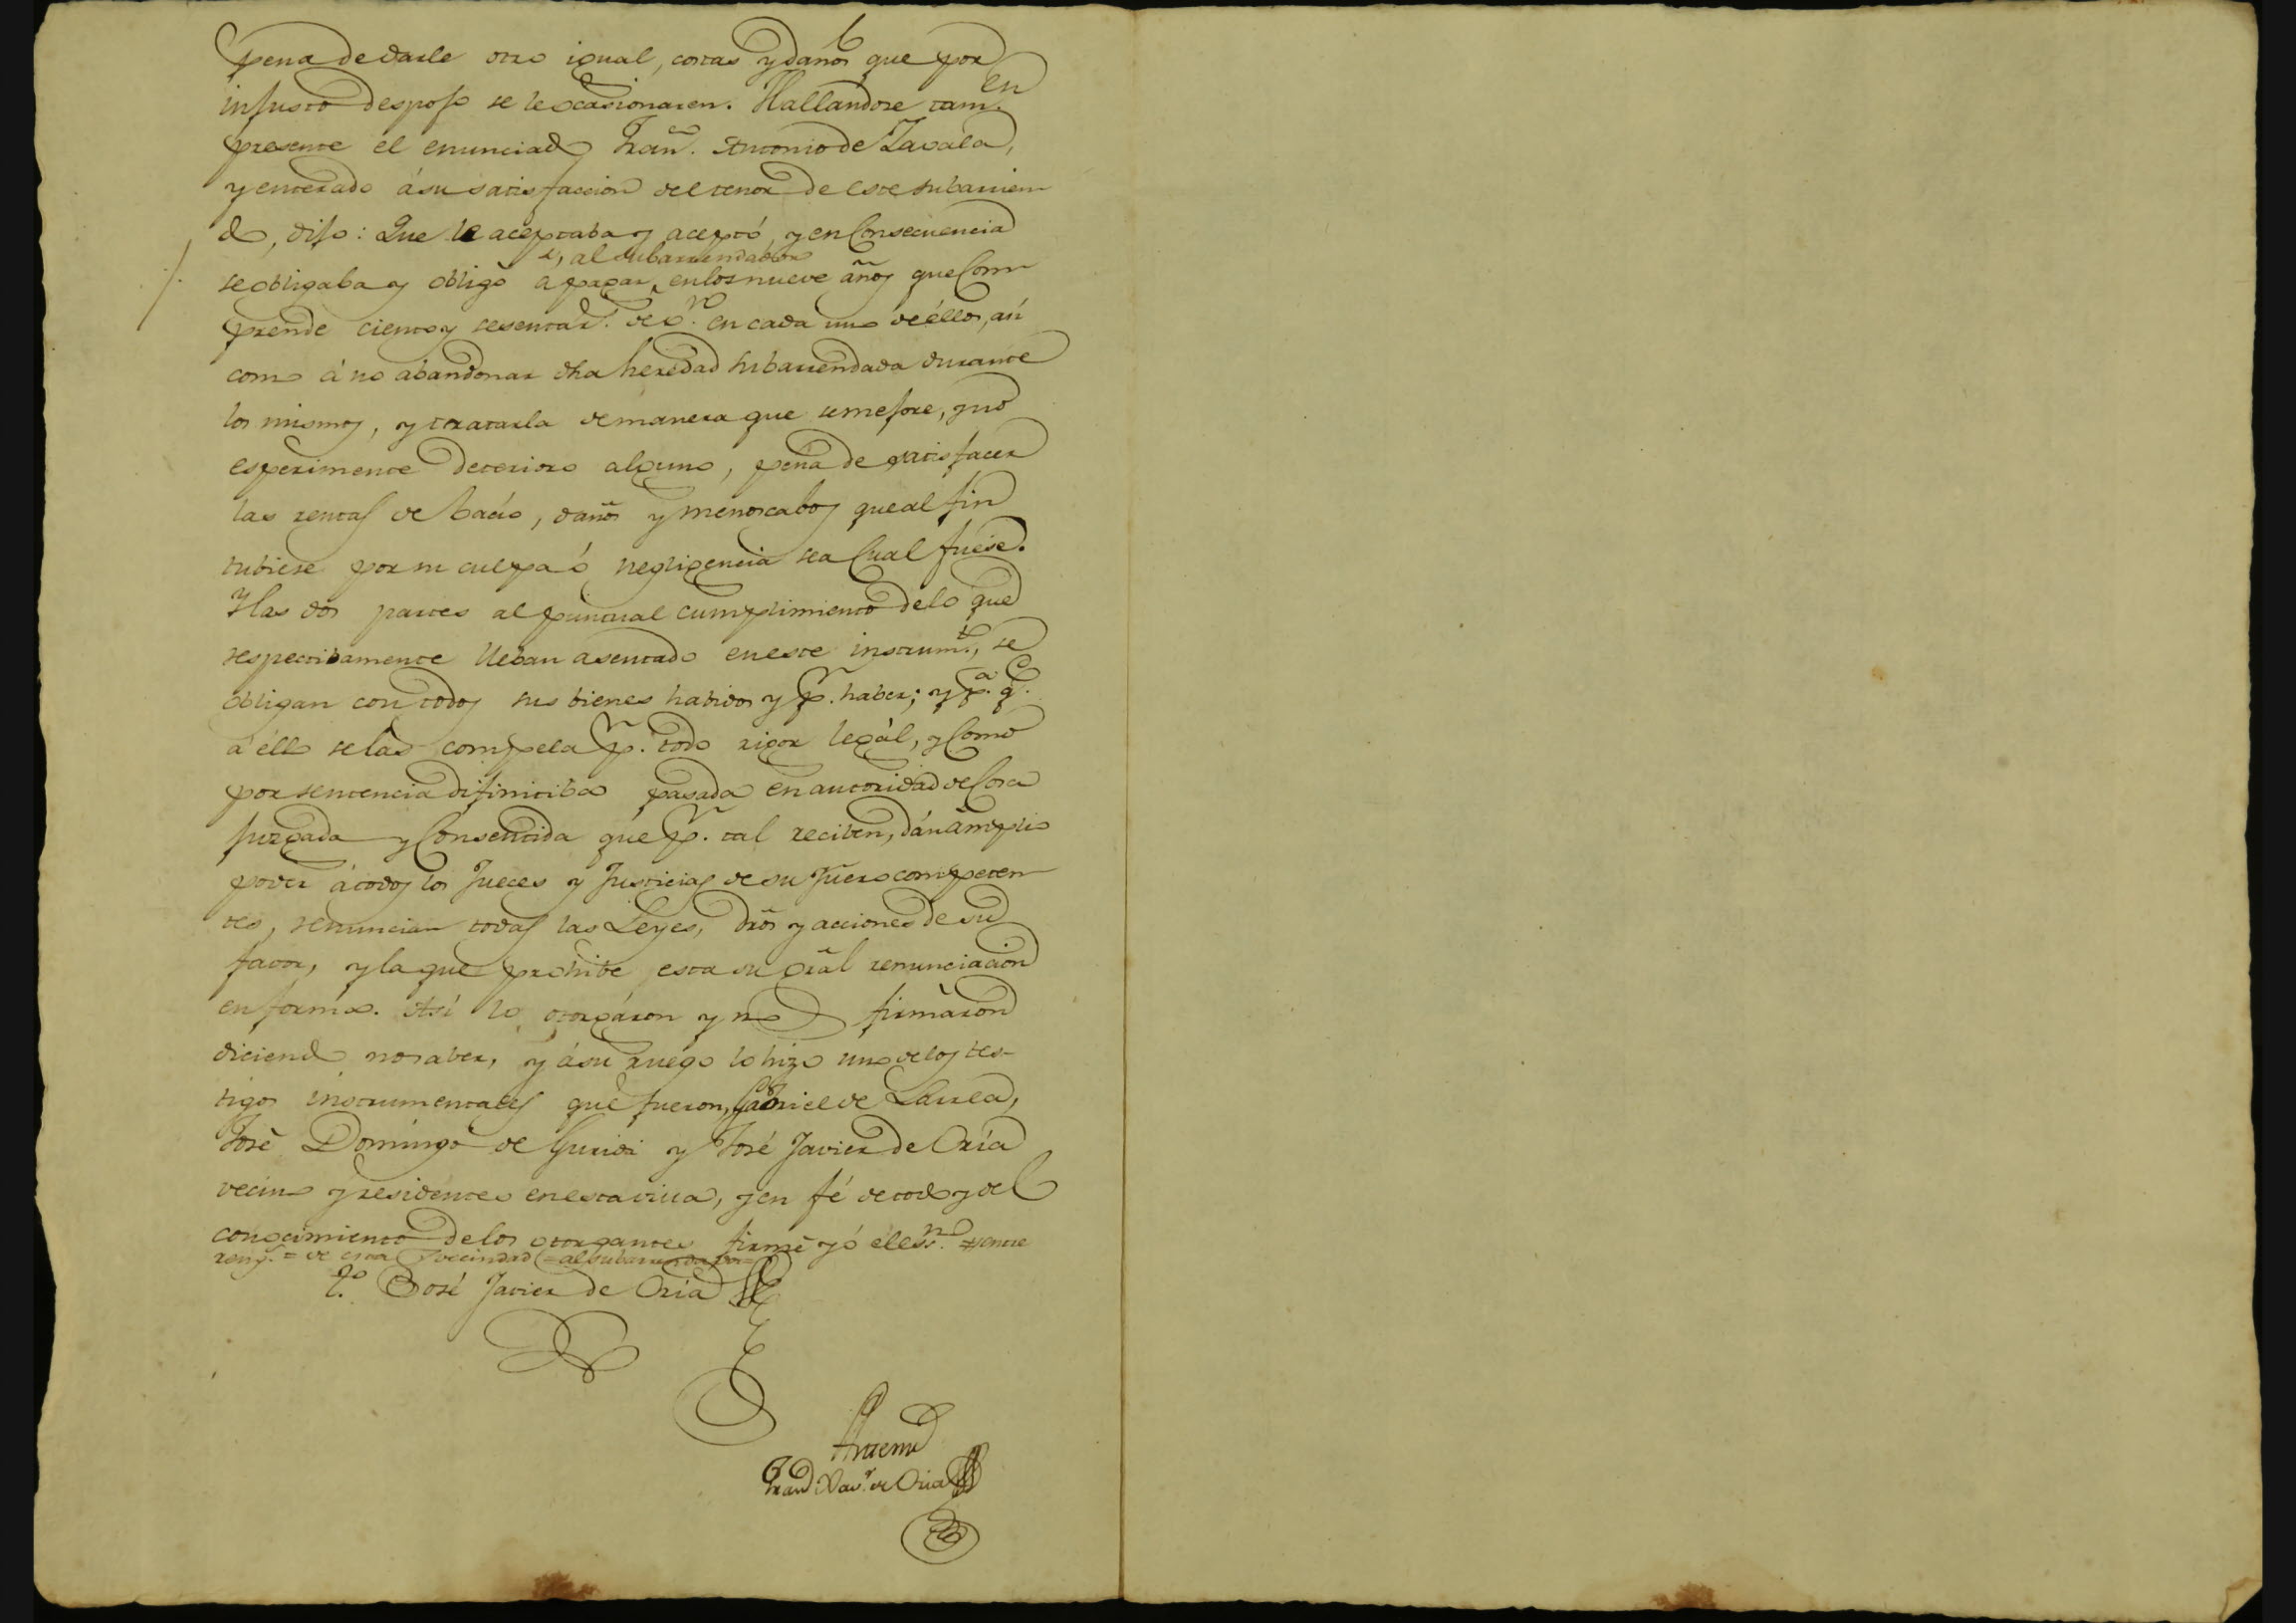 pena de darle otro igual, costas y daños que por
injusto despojo se le ocasionaren. Hallandose tam.en
presente el enunciado Fran.co Antonio de Zavala,
y enterado á su satisfaccion del tenor de este subarrien-
do, dijo: Que le aceptaba y aceptó, y en Consecuencia
al subarrendador
se obligaba y obligó á pagar, en los nueve años que Com-
prende ciento y sesenta r.s de v.n en cada uno de éllos, así
como á no abandonar dha heredad subarrendada durante
los mismos, y tratarla de manera que se mejore, y no
esperimente deterioro alguno, pena de satisfacer
las rentas de bacio, daños y menoscabos que al fin
tubiese por su culpa ó negligencia sea Cual fuese.
Y las dos partes al puntual cumplimiento de lo que
respectibamente lleban asentado en este instrum.to, se
obligan con todos sus bienes habidos y p.r haber; y p.a q.e
á éllo se las compela p.r todo rigor legál, y Como
por sentencia difinitiba pasada en autoridad de Cosa
juzgada y Consentida que p.r tal reciben, dán ámplio
poder á todos los Jueces y Justicias de su fuero competen-
tes, renuncian todas las Leyes, dros y acciones de su
favor, y la que prohibe esta su gral renunciacion
en forma. Así lo otorgáron y no firmáron
diciendo no saber, y á su ruego lo hizo uno de los tes-
tigos instrumentales que fueron, Gabriel de Larrea,
José Domingo de Guridi y José Javier de Oría
vecino y residentes en esta villa, y en fé de todo y del
conocimiento de los otorgantes firmé yó él ess.no = entre
reng.s = de esta vecindad = al subarrendador =
t.go José Javier de Oría
Ante mi
Fran.co Xav.r de Oria